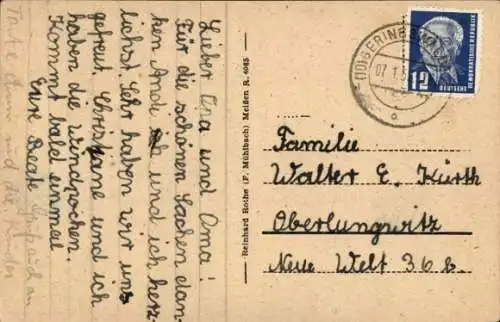 Lieber Opa und Oma!
Für die schönen Sachen dan-
ken Andi und ich herz-
lichst. Sehr haben wir uns
gefreut. Christiane und ich
haben die Windpocken.
Kommt bald einmal
Eure Beate
Reinhard Rothe (P. Mühlbach) Meißen R. 4085
GERINGSWALDE
07.1.5
12
DEUTSCHE
DEMOKRATISCHE REPUBLIK
Familie
Walter E. Kürth
Oberlungwitz
Neue Welt 36 b.